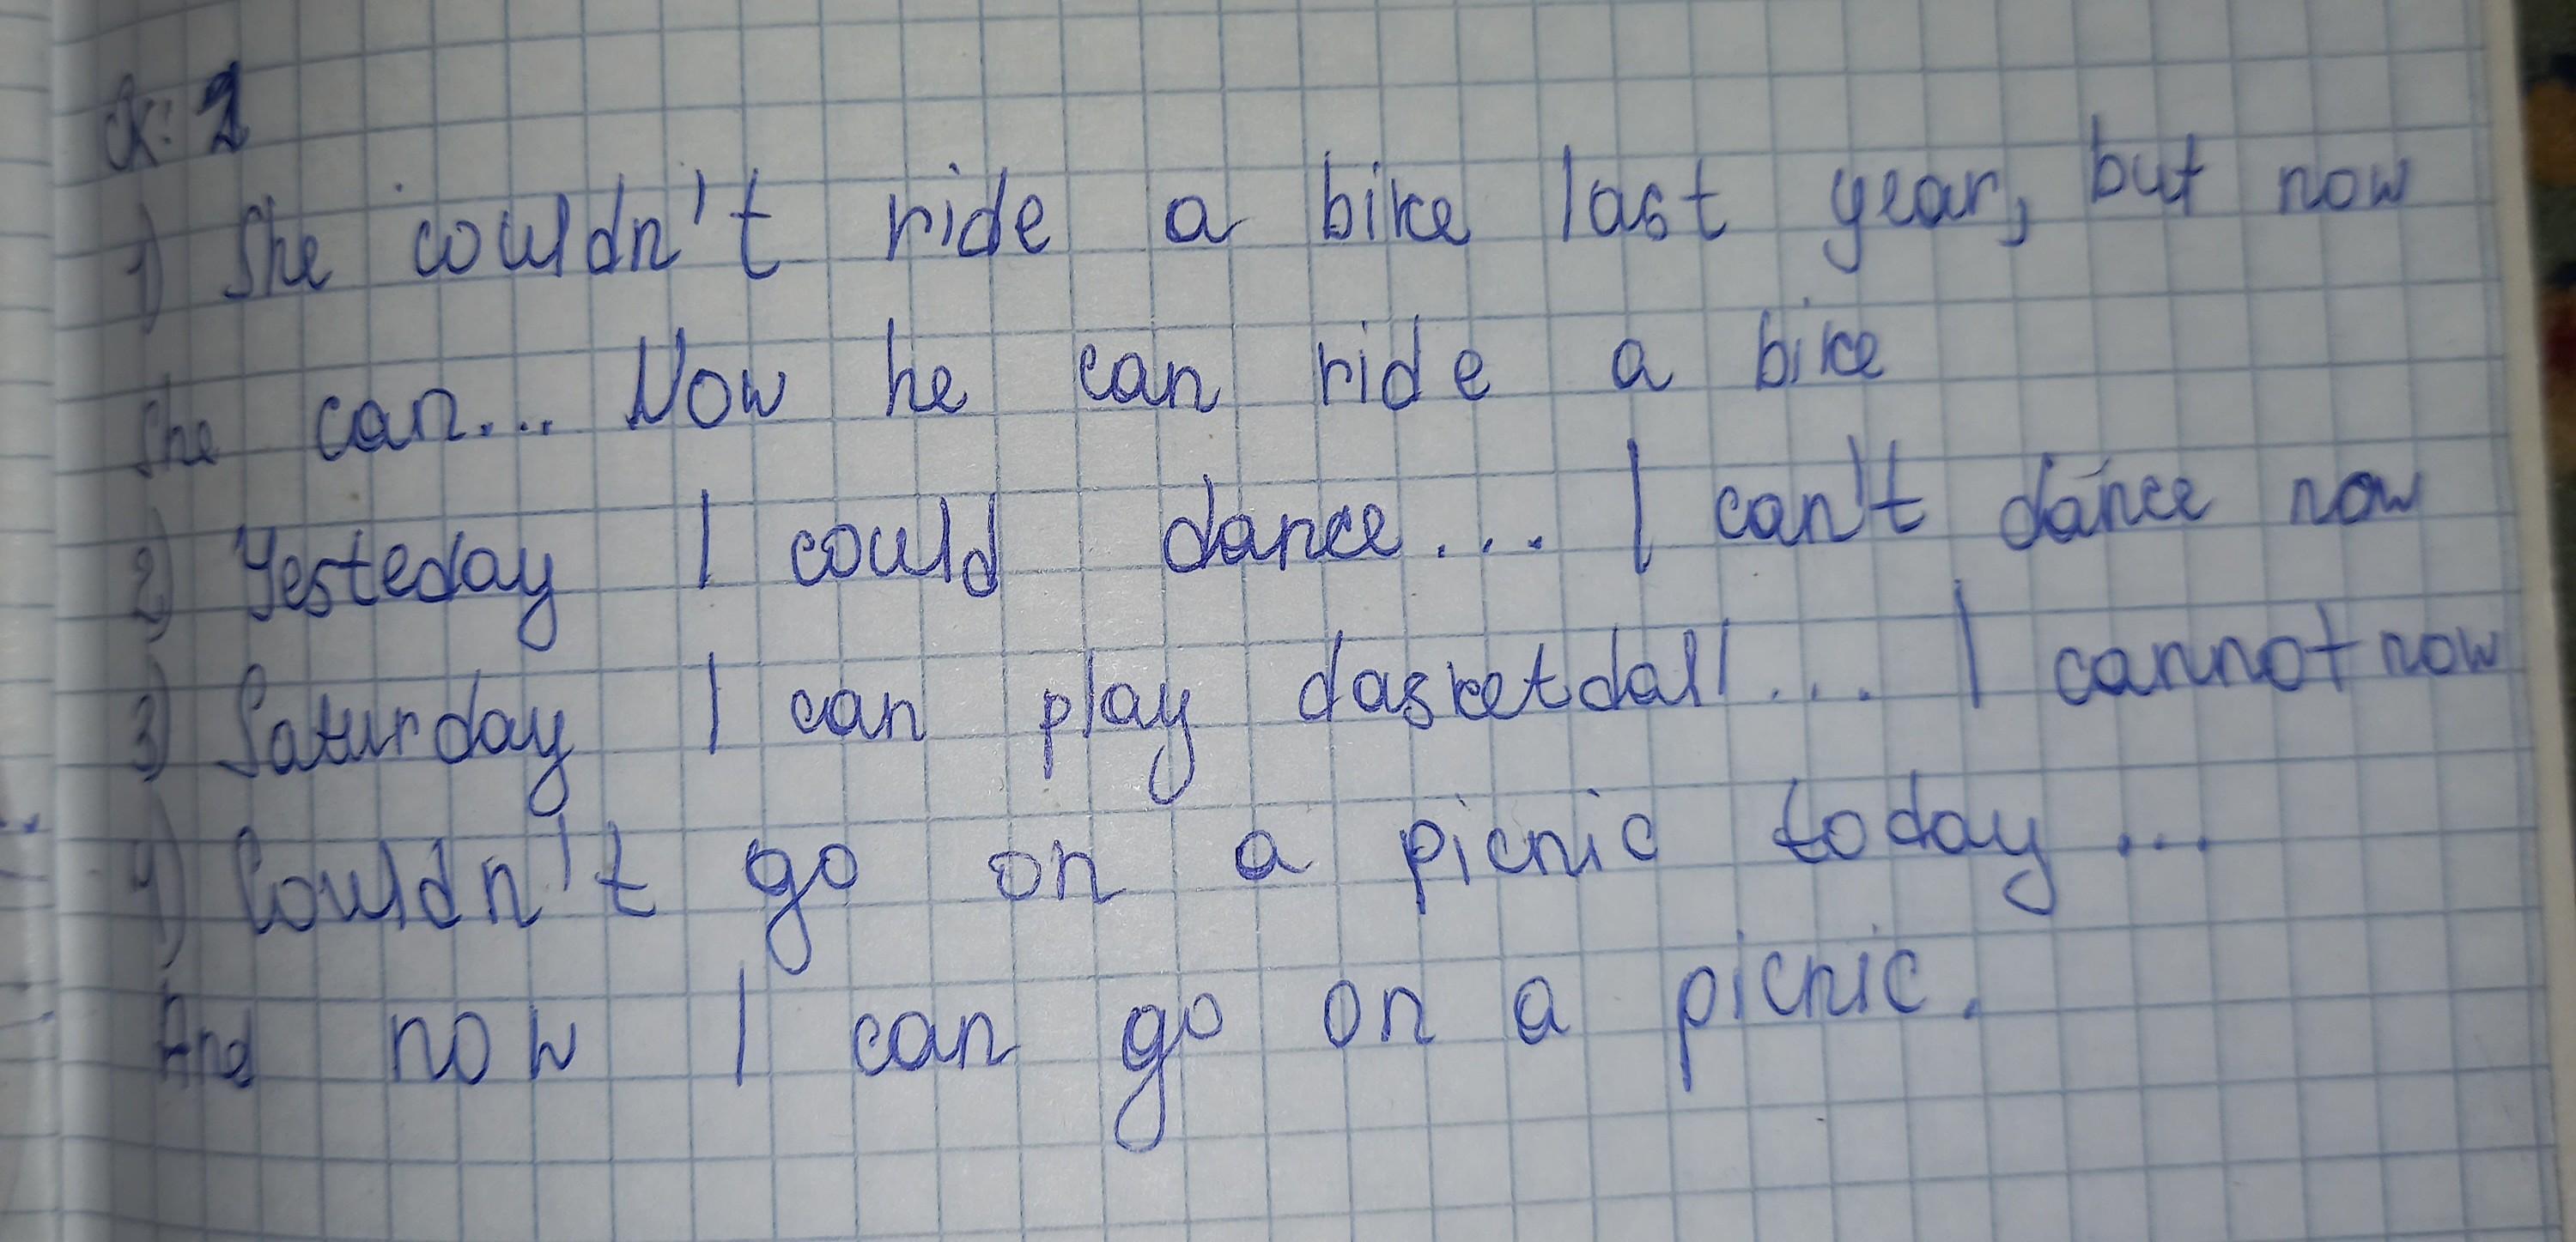 Ex: 2
1) She couldn't ride a bike last year, but now
she can... Now he can ride a bike
2) Yesteday I could dance... I can't dance now
3) Saturday I can play dasketdall... I cannot now
4) Couldn't go on a picnic today...
And now I can go on a picnic.